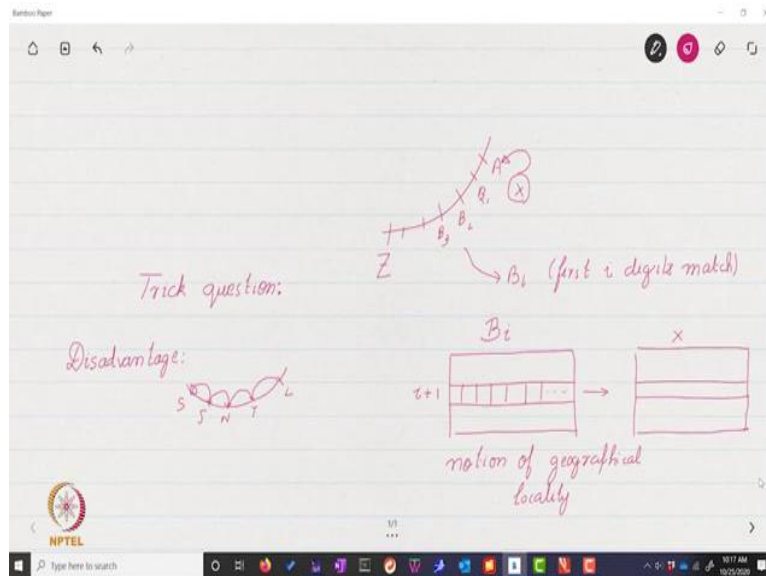 Bamboo Paper
A
X
B₁
B₂
B₃
Z
Bi (first i digits match)
Trick question:
Bi
X
Disadvantage:
i+1
S
S
N
T
L
notion of geographical
locality
NPTEL
1/1
Type here to search
10:17 AM
10/25/2020